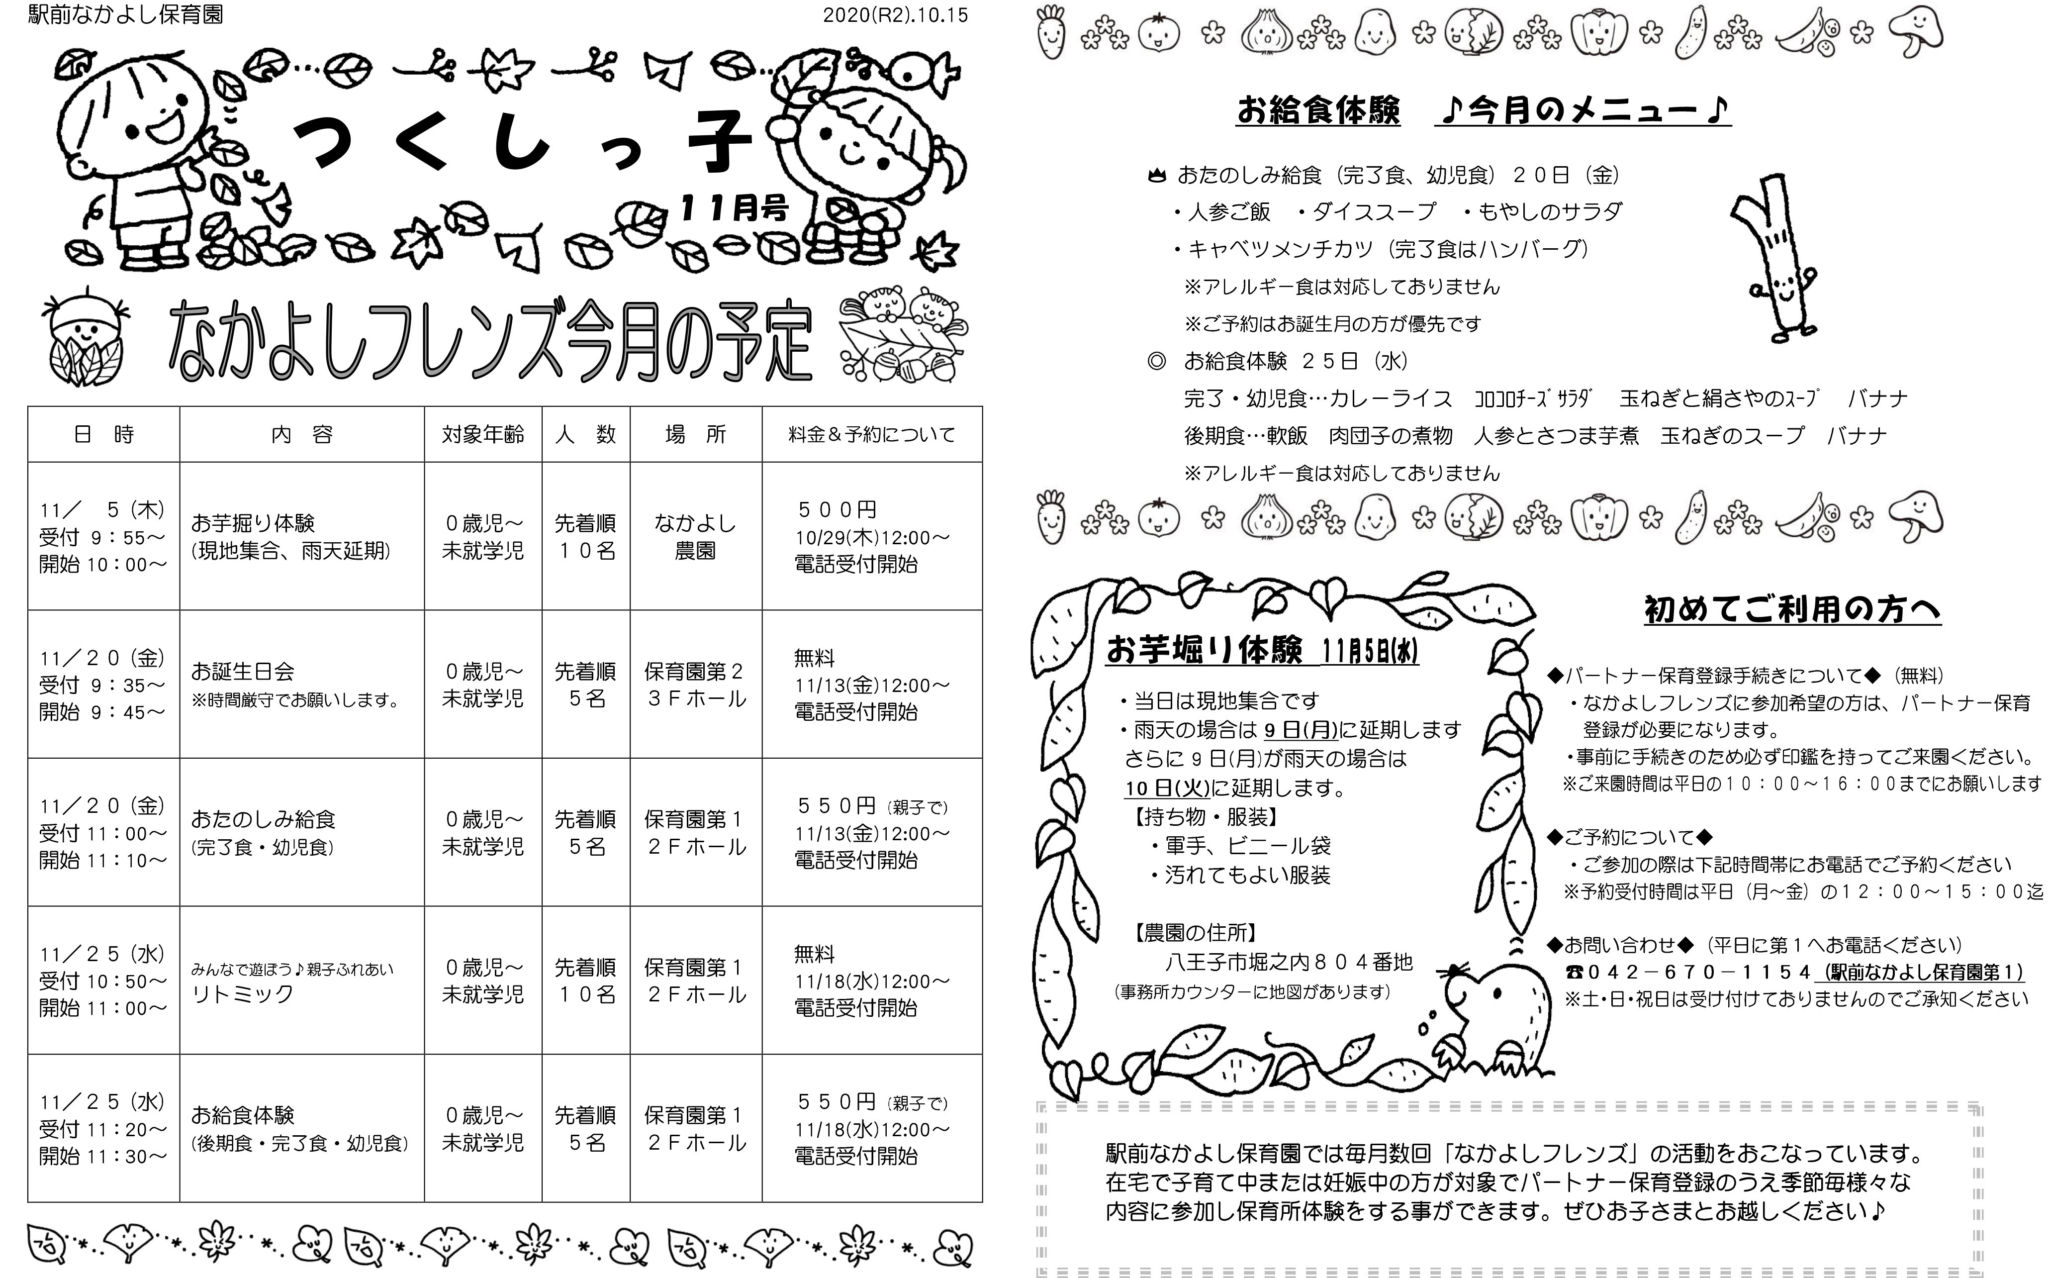 駅前なかよし保育園
2020(R2).10.15
つくしっ子
11月号
なかよしフレンズ今月の予定
日 時 内 容 対象年齢 人 数 場 所 料金＆予約について
11／ 5（木）
受付 9：55～
開始 10：00～
お芋掘り体験
(現地集合、雨天延期)
０歳児～
未就学児
先着順
１０名
なかよし
農園
５００円
10/29(木)12:00～
電話受付開始
11／２０（金）
受付 9：35～
開始 9：45～
お誕生日会
※時間厳守でお願いします。
０歳児～
未就学児
先着順
５名
保育園第２
３Ｆホール
無料
11/13(金)12:00～
電話受付開始
11／２０（金）
受付 11：00～
開始 11：10～
おたのしみ給食
(完了食・幼児食)
０歳児～
未就学児
先着順
５名
保育園第１
２Ｆホール
５５０円（親子で）
11/13(金)12:00～
電話受付開始
11／２５（水）
受付 10：50～
開始 11：00～
みんなで遊ぼう♪親子ふれあい
リトミック
０歳児～
未就学児
先着順
１０名
保育園第１
２Ｆホール
無料
11/18(水)12:00～
電話受付開始
11／２５（水）
受付 11：20～
開始 11：30～
お給食体験
(後期食・完了食・幼児食)
０歳児～
未就学児
先着順
５名
保育園第１
２Ｆホール
５５０円（親子で）
11/18(水)12:00～
電話受付開始
お給食体験 ♪今月のメニュー♪
おたのしみ給食（完了食、幼児食）２０日（金）
・人参ご飯 ・ダイススープ ・もやしのサラダ
・キャベツメンチカツ（完了食はハンバーグ）
※アレルギー食は対応しておりません
※ご予約はお誕生月の方が優先です
◎ お給食体験 ２５日（水）
完了・幼児食…カレーライス ｺﾛｺﾛﾁｰｽﾞｻﾗﾀﾞ 玉ねぎと絹さやのｽｰﾌﾟ バナナ
後期食…軟飯 肉団子の煮物 人参とさつま芋煮 玉ねぎのスープ バナナ
※アレルギー食は対応しておりません
お芋掘り体験 11月5日(水)
・当日は現地集合です
・雨天の場合は 9 日(月)に延期します
さらに 9 日(月)が雨天の場合は
10 日(火)に延期します。
【持ち物・服装】
・軍手、ビニール袋
・汚れてもよい服装
【農園の住所】
八王子市堀之内８０４番地
（事務所カウンターに地図があります）
初めてご利用の方へ
◆パートナー保育登録手続きについて◆（無料）
・なかよしフレンズに参加希望の方は、パートナー保育
登録が必要になります。
・事前に手続きのため必ず印鑑を持ってご来園ください。
※ご来園時間は平日の１０：００～１６：００までにお願いします
◆ご予約について◆
・ご参加の際は下記時間帯にお電話でご予約ください
※予約受付時間は平日（月～金）の１２：００～１５：００迄
◆お問い合わせ◆（平日に第１へお電話ください）
☎０４２－６７０－１１５４（駅前なかよし保育園第１）
※土・日・祝日は受け付けておりませんのでご承知ください
駅前なかよし保育園では毎月数回「なかよしフレンズ」の活動をおこなっています。
在宅で子育て中または妊娠中の方が対象でパートナー保育登録のうえ季節毎様々な
内容に参加し保育所体験をする事ができます。ぜひお子さまとお越しください♪